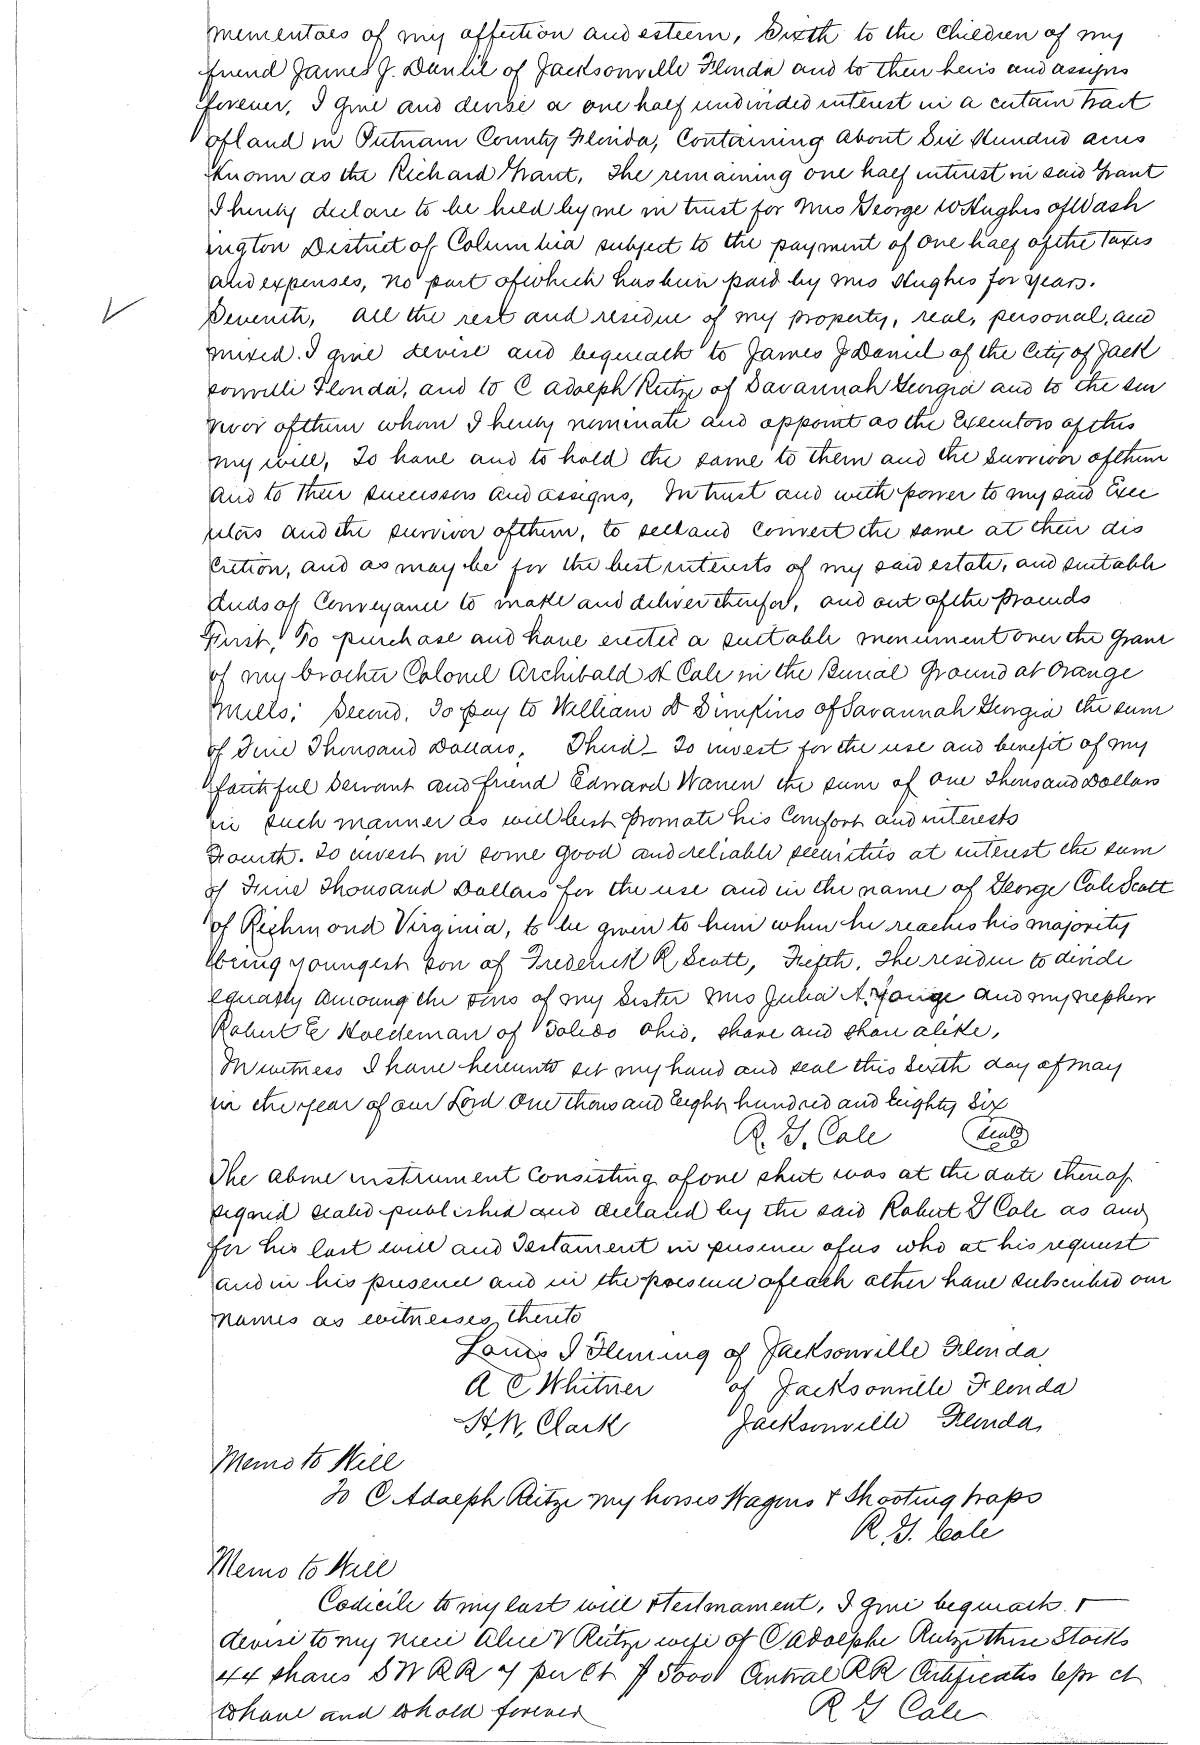 mementoes of my affection and esteem, Sixth to the Children of my
friend James J. Daniel of Jacksonville Florida and to their heirs and assigns
forever, I give and devise a one half undivided interest in a certain tract
of land in Putnam County Florida, Containing about Six Hundred acres
Known as the Richard Grant, The remaining one half interest in said Grant
I hereby declare to be held by me in trust for Mrs George W Hughes of Wash
ington District of Columbia subject to the payment of one half of the Taxes
and expenses, no part of which has been paid by Mrs Hughes for years.
Seventh, all the rest and residue of my property, real, personal, and
mixed. I give devise and bequeath to James J Daniel of the City of Jack
sonville Florida, and to C Adolph Reitze of Savannah Georgia and to the sur
vivor of them whom I hereby nominate and appoint as the Executors of this
my will, To have and to hold the same to them and the Survivor of them
and to their successors and assigns, In trust and with power to my said Exec
utors and the survivor of them, to sell and Convert the same at their dis
cretion, and as may be for the best interests of my said estate, and suitable
deeds of Conveyance to make and deliver therefor, and out of the proceeds
First, To purchase and have erected a suitable monument over the Grave
of my brother Colonel Archibald H Cole in the Burial Ground at Orange
Mills; Second, To pay to William D Simkins of Savannah Georgia the sum
of Five Thousand Dollars, Third – To invest for the use and benefit of my
faithful Servant and friend Edward Warren the sum of One Thousand Dollars
in such manner as will best promote his Comfort and interests
Fourth. To invest in some good and reliable securities at interest the sum
of Five Thousand Dollars for the use and in the name of George Cole Scott
of Richmond Virginia, to be given to him when he reaches his majority
being youngest son of Frederick R Scott, Fifth, The residue to divide
equally among the sons of my Sister Mrs Julia A. Yonge and my nephew
Robert E Holdeman of Toledo Ohio, share and share alike,
In witness I have hereunto set my hand and seal this Sixth day of May
in the year of our Lord One thousand Eight hundred and Eighty Six
R. G. Cole (Seal)
The above instrument Consisting of one sheet was at the date thereof
signed sealed published and declared by the said Robert G Cole as and
for his last will and Testament in presence of us who at his request
and in his presence and in the presence of each other have subscribed our
names as witnesses thereto
Louis I Fleming of Jacksonville Florida
A C Whitner of Jacksonville Florida
H. W. Clark Jacksonville Florida,
Memo to Will
To C. Adolph Reitze my horses Wagons & Shooting traps
R. G. Cole
Memo to Will
Codicile to my last will & testmament, I give bequeath &
devise to my niece Alice V Reitze wife of C Adolphe Reitze these Stocks
44 shares S W RR 7 per Ct $ 5000 Central RR Certificates 6 pr ct
to have and to hold forever
R G Cole